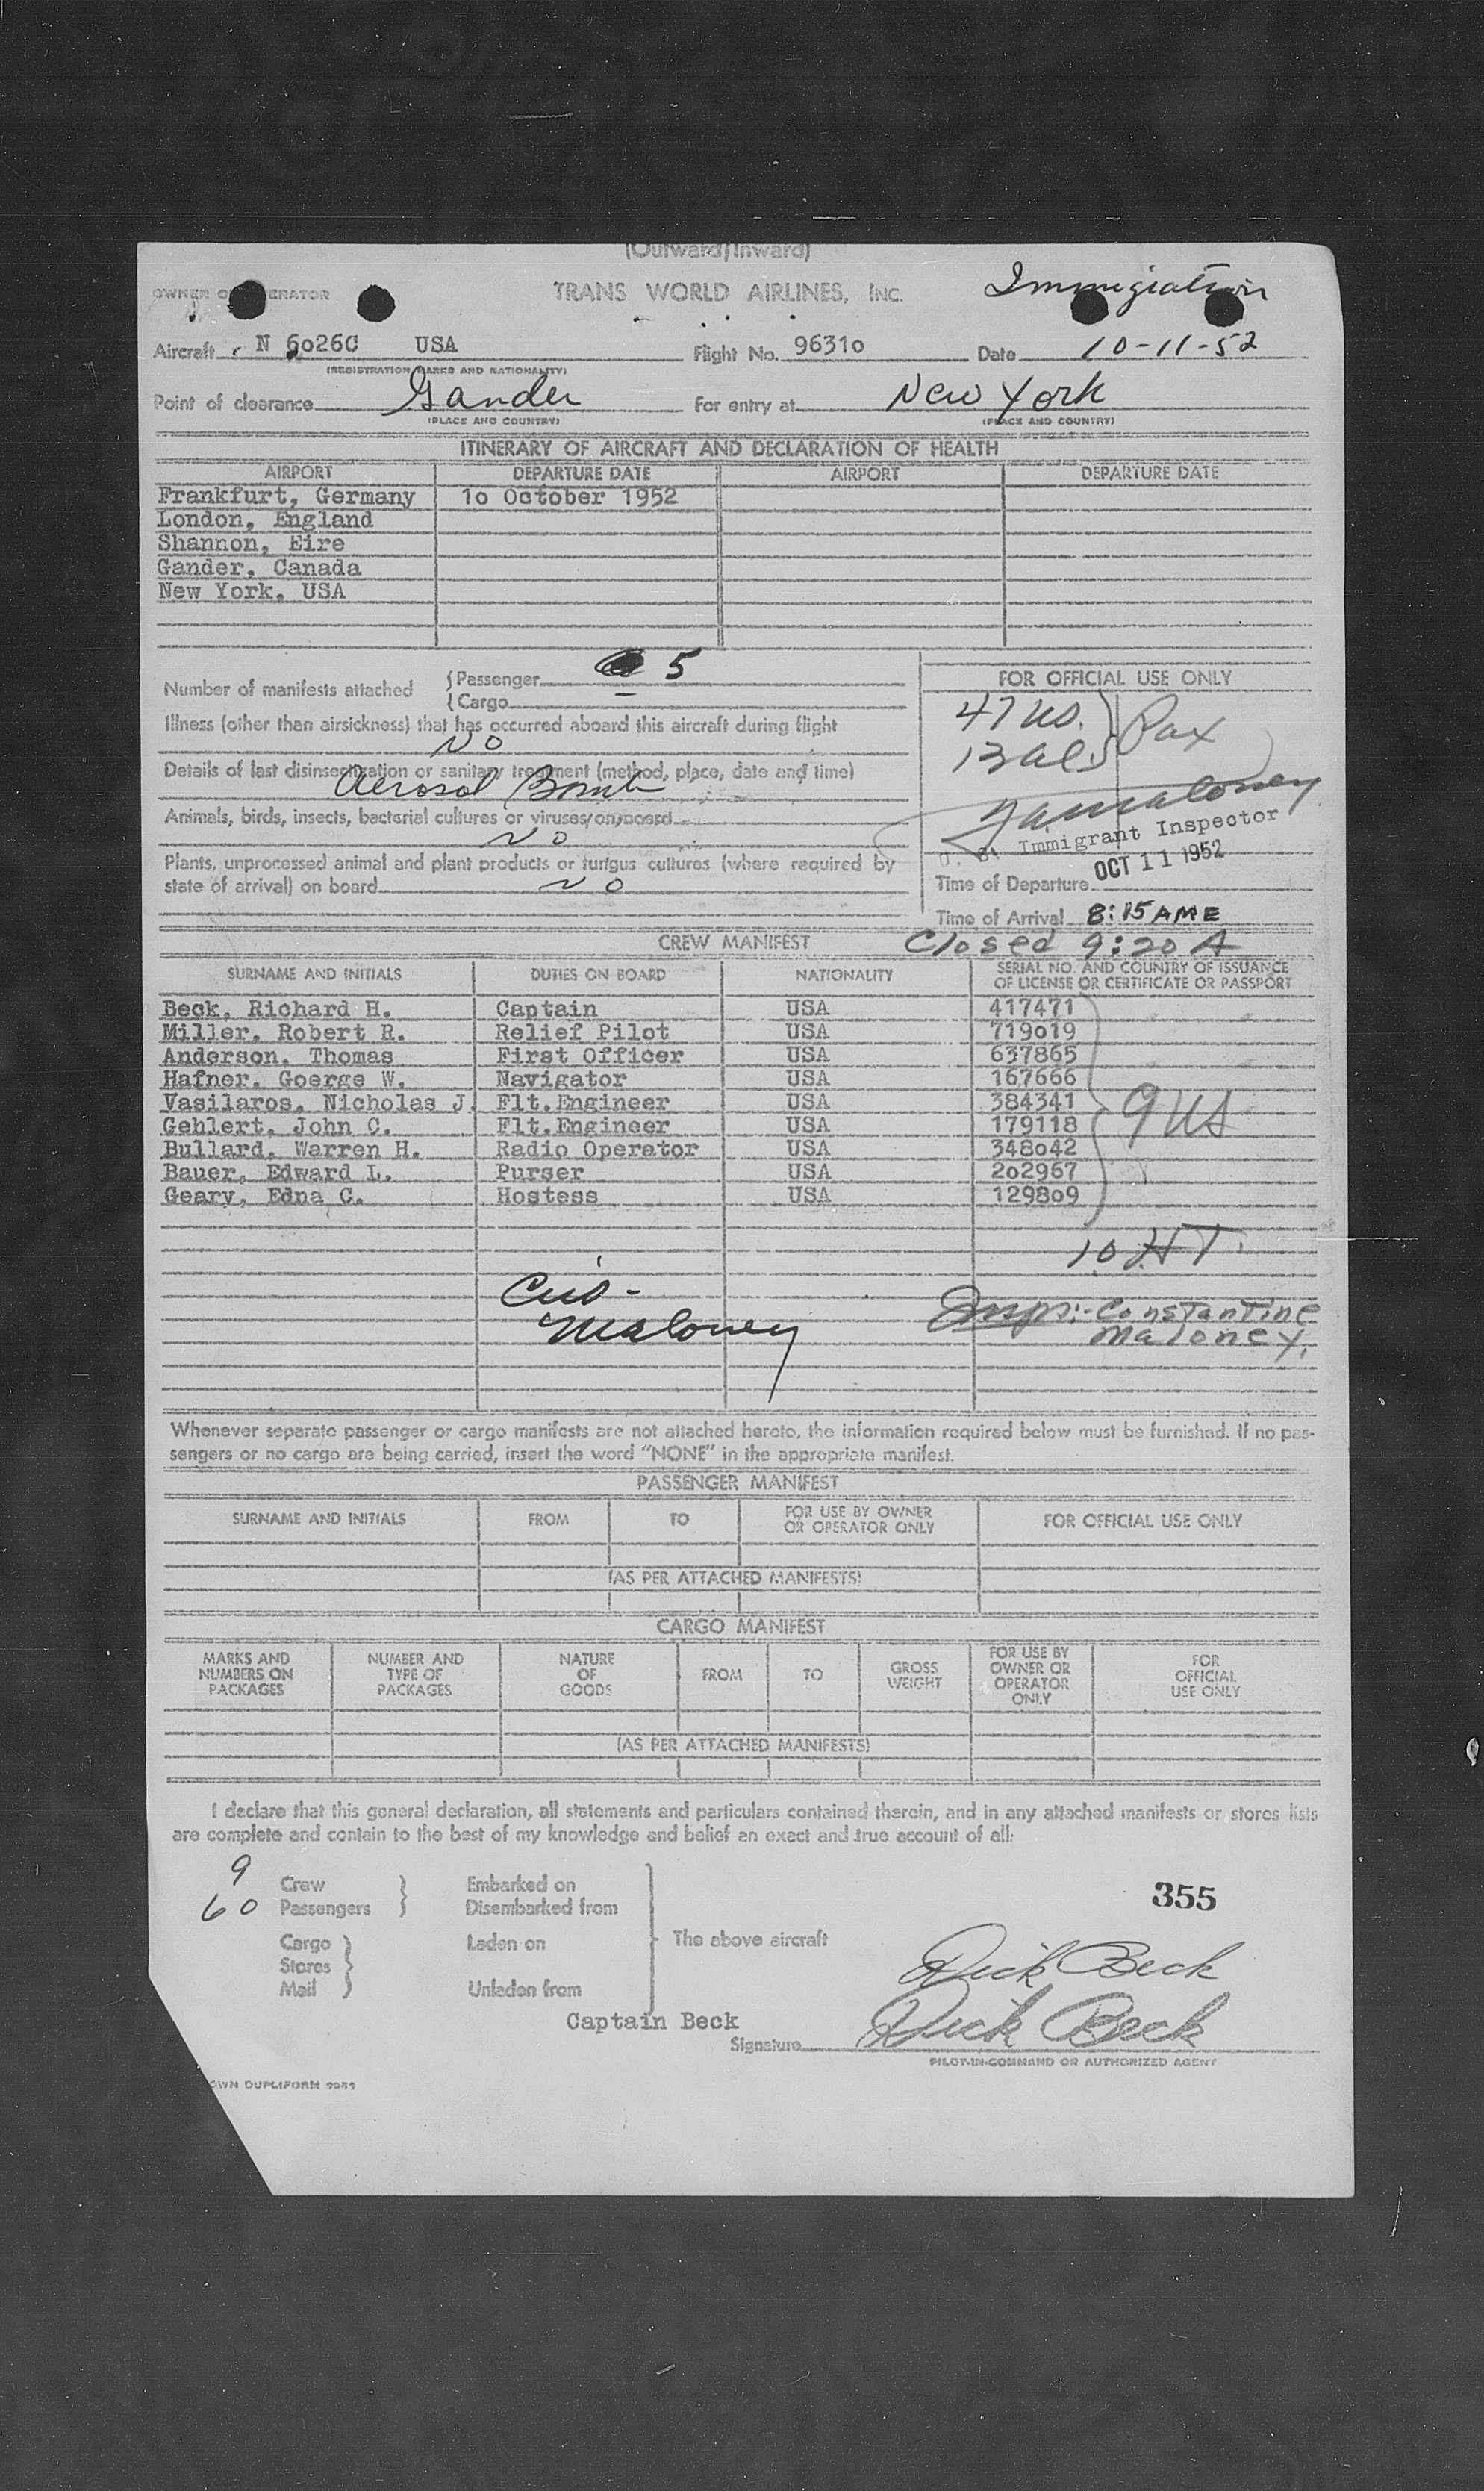 (Outward/Inward)
OWNER O ERATOR TRANS WORLD AIRLINES, INC. Immigration
Aircraft N 6o26C USA Flight No. 9631o Date 10-11-52
(REGISTRATION MARKS AND NATIONALITY)
Point of clearance Gander For entry at New York
(PLACE AND COUNTRY) (PLACE AND COUNTRY)
ITINERARY OF AIRCRAFT AND DECLARATION OF HEALTH
AIRPORT DEPARTURE DATE AIRPORT DEPARTURE DATE
Frankfurt, Germany 1o October 1952
London, England
Shannon, Eire
Gander, Canada
New York, USA
Number of manifests attached { Passenger 5
{ Cargo –
Illness (other than airsickness) that has occurred aboard this aircraft during flight
NO
Details of last disinsectization or sanitary treatment (method, place, date and time)
Aerosol Bomb
Animals, birds, insects, bacterial cultures or viruses on board
NO
Plants, unprocessed animal and plant products or fungus cultures (where required by
state of arrival) on board NO
FOR OFFICIAL USE ONLY
47 US. } Pax
13 als
Maloney
U. S. Immigrant Inspector
Time of Departure OCT 11 1952
Time of Arrival 8:15 AME
CREW MANIFEST Closed 9:20 A
SURNAME AND INITIALS DUTIES ON BOARD NATIONALITY SERIAL NO. AND COUNTRY OF ISSUANCE
OF LICENSE OR CERTIFICATE OR PASSPORT
Beck, Richard H. Captain USA 417471
Miller, Robert R. Relief Pilot USA 719o19
Anderson, Thomas First Officer USA 637865
Hafner, Goerge W. Navigator USA 167666
Vasilaros, Nicholas J. Flt.Engineer USA 384341
Gehlert, John C. Flt.Engineer USA 179118
Bullard, Warren H. Radio Operator USA 348o42
Bauer, Edward L. Purser USA 2o2967
Geary, Edna C. Hostess USA 1298o9
9 US
10 HT.
Maloney
Insps:- Constantine
Maloney.
Whenever separate passenger or cargo manifests are not attached hereto, the information required below must be furnished. If no pas-
sengers or no cargo are being carried, insert the word "NONE" in the appropriate manifest.
PASSENGER MANIFEST
SURNAME AND INITIALS FROM TO FOR USE BY OWNER
OR OPERATOR ONLY FOR OFFICIAL USE ONLY
(AS PER ATTACHED MANIFESTS)
CARGO MANIFEST
MARKS AND
NUMBERS ON
PACKAGES NUMBER AND
TYPE OF
PACKAGES NATURE
OF
GOODS FROM TO GROSS
WEIGHT FOR USE BY
OWNER OR
OPERATOR
ONLY FOR
OFFICIAL
USE ONLY
(AS PER ATTACHED MANIFESTS)
I declare that this general declaration, all statements and particulars contained therein, and in any attached manifests or stores lists
are complete and contain to the best of my knowledge and belief an exact and true account of all:
9 Crew } Embarked on
60 Passengers } Disembarked from
355
Cargo } Laden on The above aircraft
Stores
Mail } Unladen from
Dick Beck
Captain Beck
Signature Dick Beck
PILOT-IN-COMMAND OR AUTHORIZED AGENT
OWN DUPLIFORM